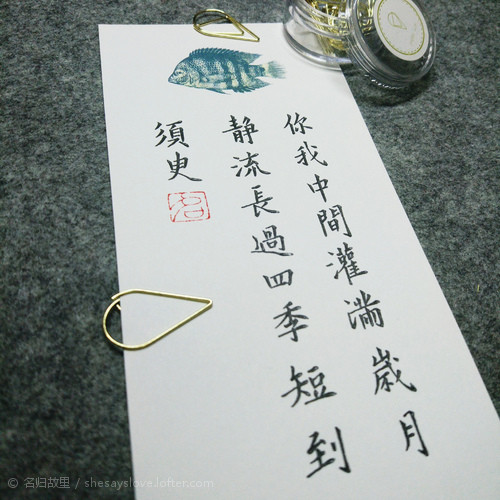 你我中間灌滿歲月
靜流長過四季短到
須臾
名
© 名归故里 / shesayslove.lofter.com